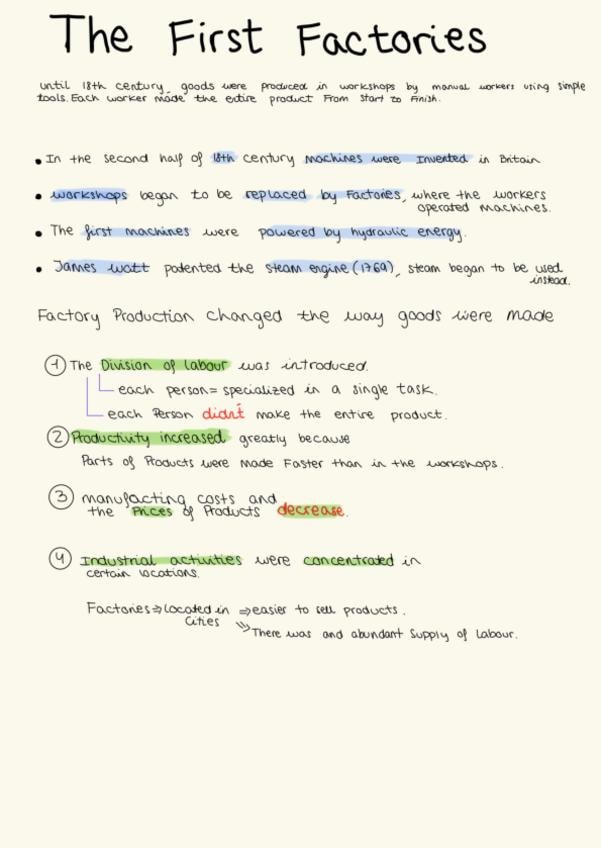 The First Factories
until 18th century, goods were produced in workshops by manual workers using simple
tools. Each worker made the entire product From start to Finish.
• In the second half of 18th century machines were Invented in Britain
• workshops began to be replaced by Factories, where the workers
operated machines.
• The first machines were powered by hydraulic energy.
• James watt patented the steam engine (1769), steam began to be used
instead.
Factory Production changed the way goods were made
1 The Division of labour was introduced.
each person = specialized in a single task.
each Person didn't make the entire product.
2 Productivity increased greatly because
Parts of Products were made Faster than in the workshops.
3 manufacting costs and
the Prices of Products decrease.
4 Industrial activities were concentrated in
certain locations.
Factories ⇒ located in ⇒ easier to sell products.
Cities ⇒ There was and abundant Supply of Labour.